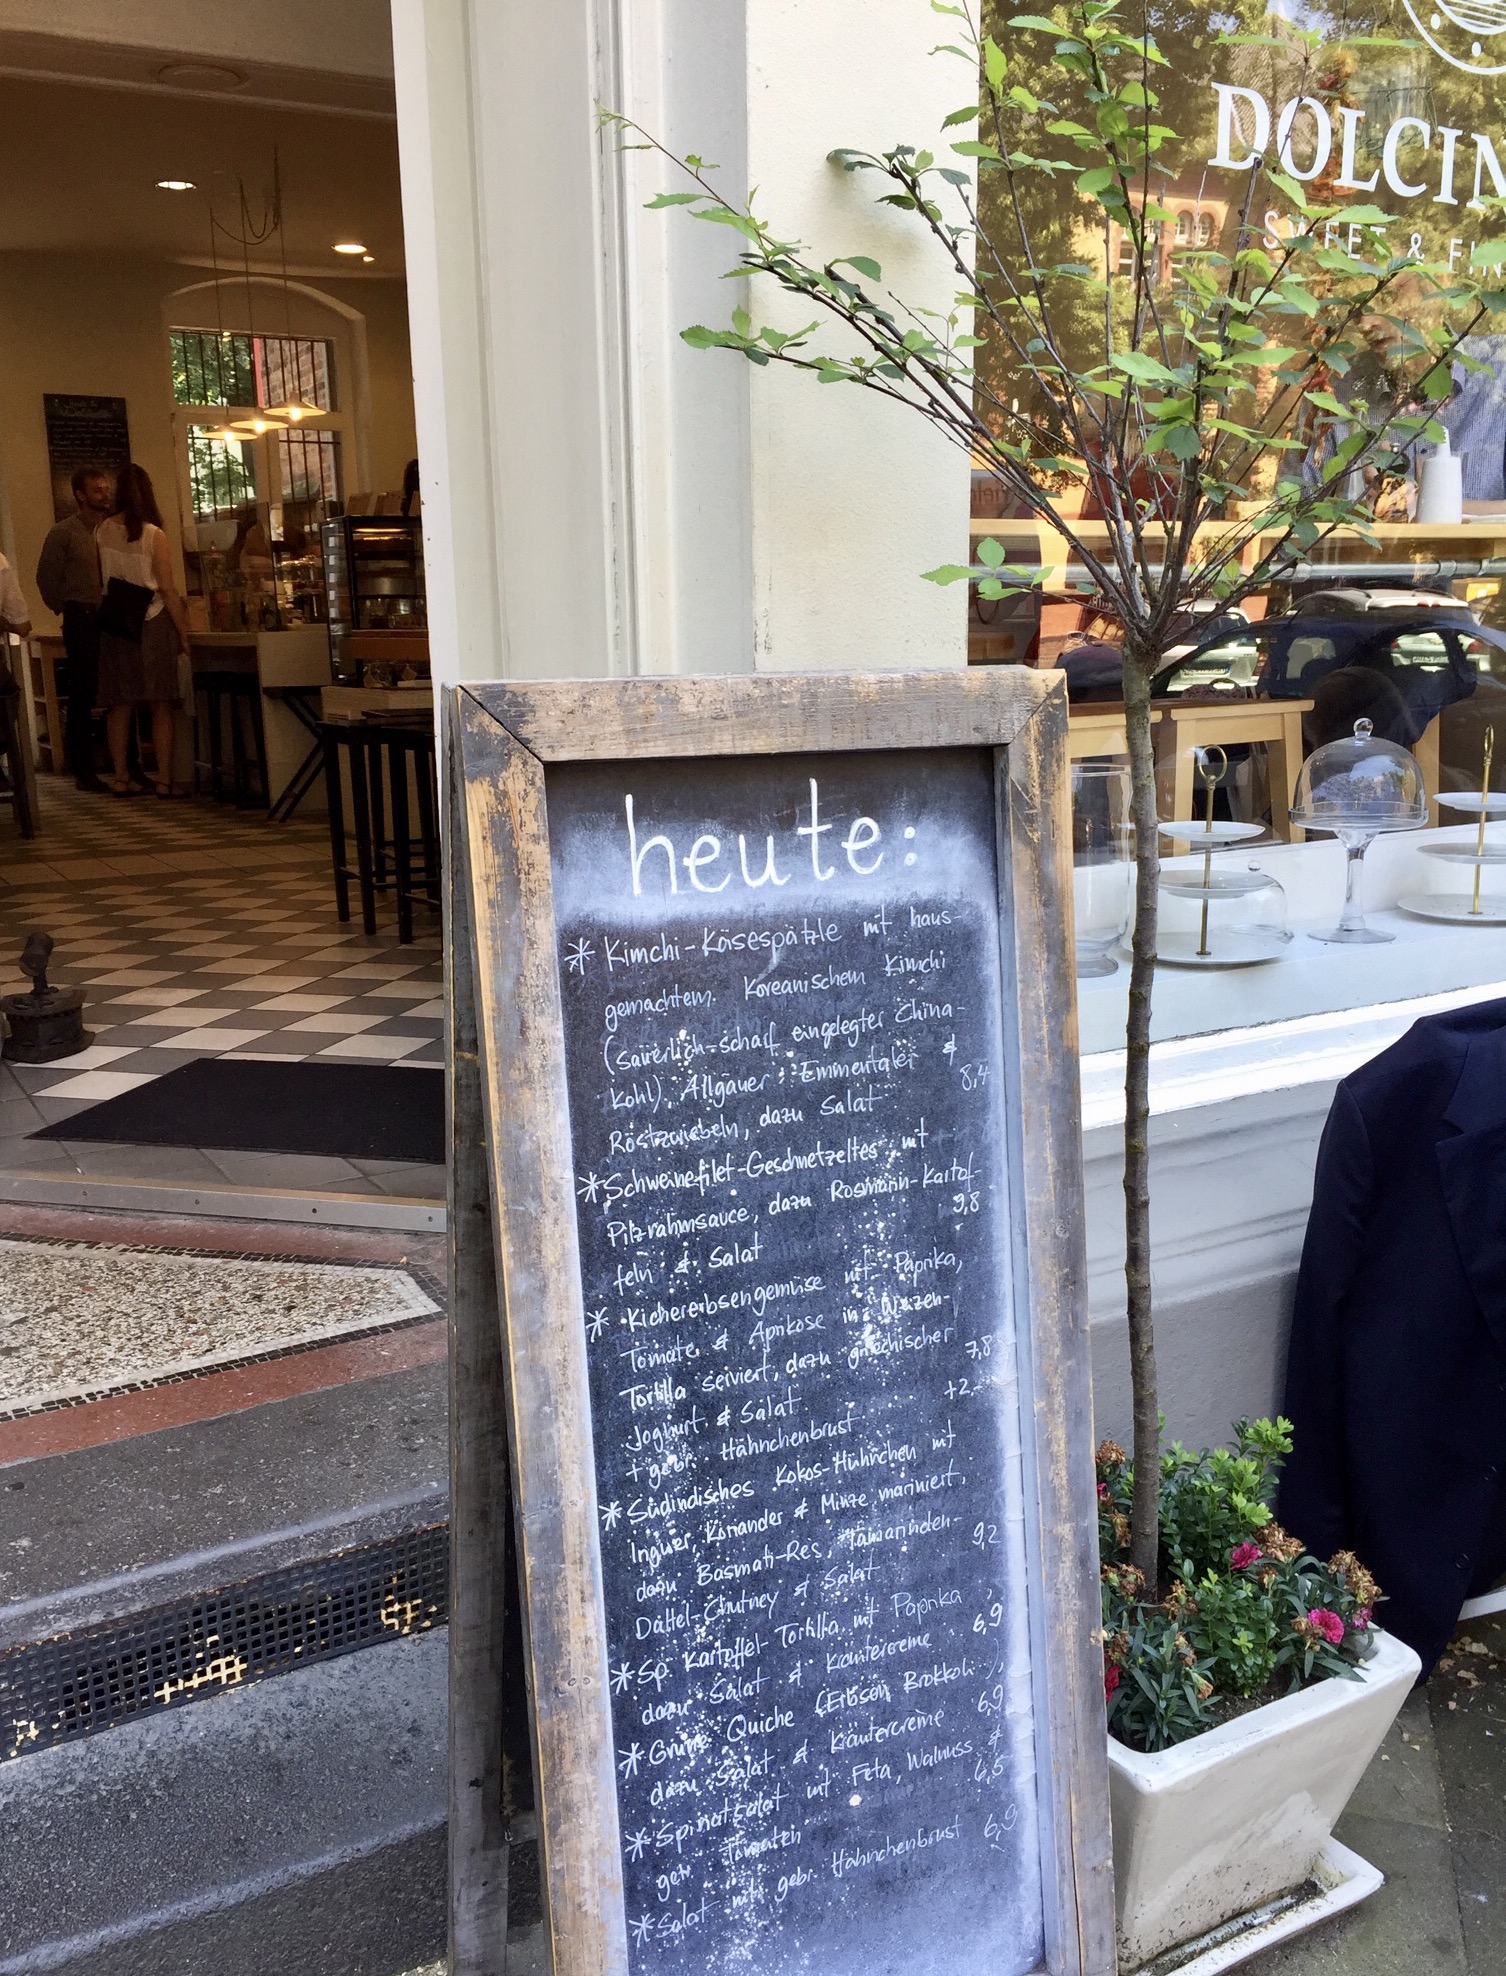 DOLCIN
SWEET & FIN
heute:
* Kimchi-Käsespätzle mit haus-
gemachtem Koreanischem Kimchi
(säuerlich-scharf eingelegter China-
kohl), Allgäuer Emmentaler &
Röstzwiebeln, dazu Salat 8,4
* Schweinefilet-Geschnetzeltes mit
Pilzrahmsauce, dazu Rosmarin-Kartof-
feln & Salat 9,8
* Kichererbsengemüse mit Paprika,
Tomate & Aprikose in Weizen-
Tortilla serviert, dazu griechischer
Joghurt & Salat 7,8
+ gebr. Hähnchenbrust +2,-
* Südindisches Kokos-Hühnchen mit
Ingwer, Koriander & Minze mariniert,
dazu Basmati-Reis, Tamarinden-
Dattel-Chutney & Salat 9,2
* Sp. Kartoffel-Tortilla mit Paprika,
dazu Salat & Kräutercreme 6,9
* Grüne Quiche (Erbsen, Brokkoli),
dazu Salat & Kräutercreme 6,9
* Spinatsalat mit Feta, Walnuss &
getr. Tomaten 6,5
* Salat mit gebr. Hähnchenbrust 6,9